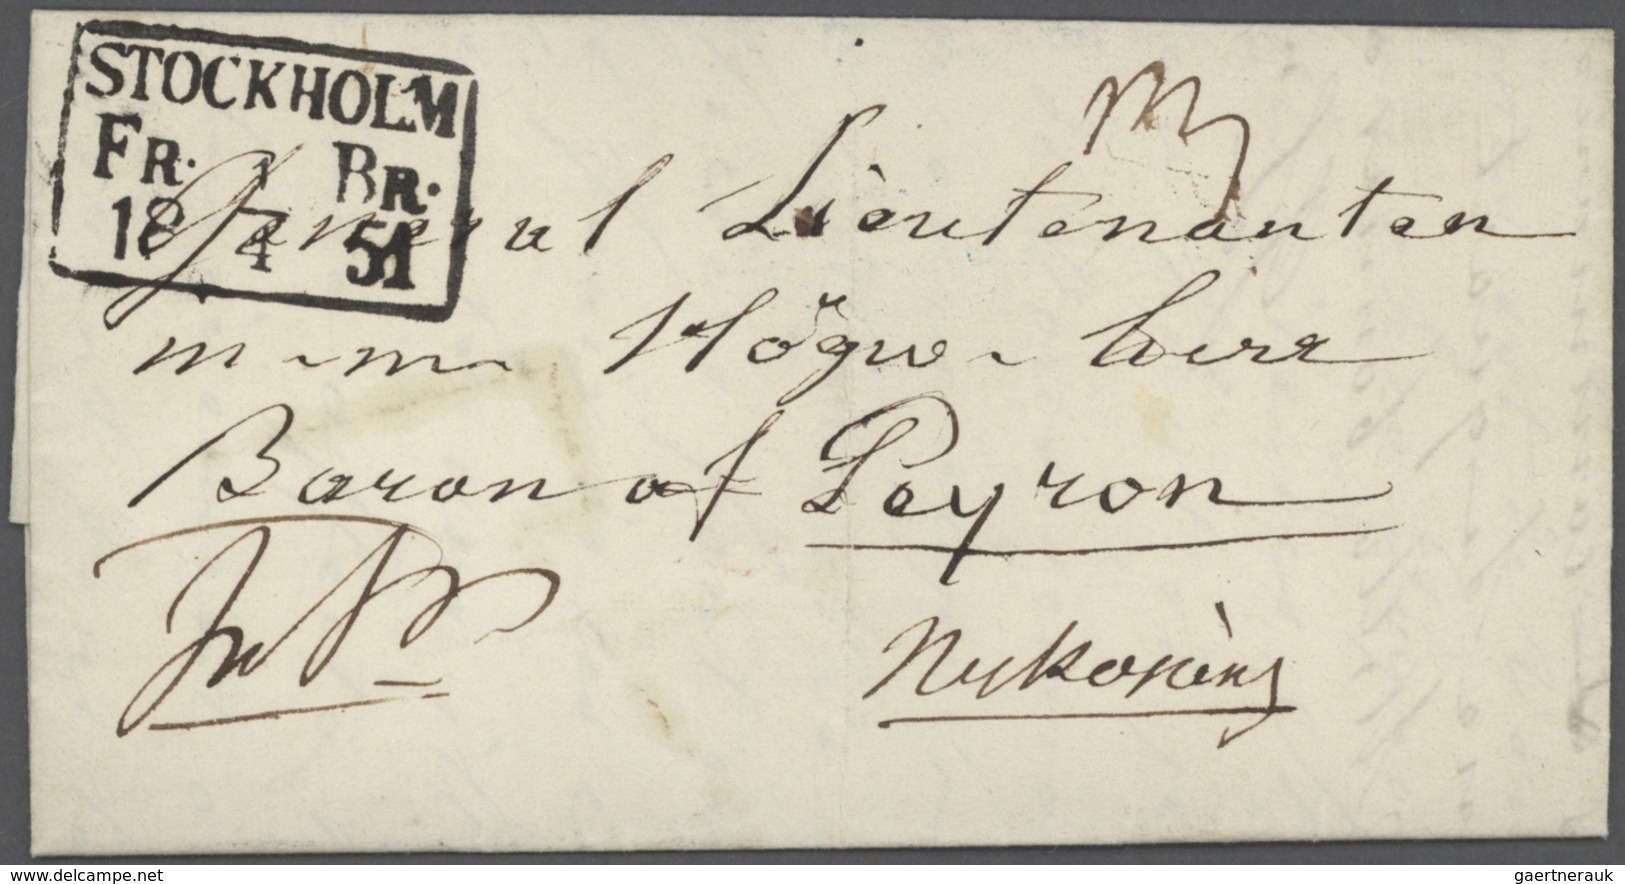 STOCKHOLM
FR. BR.
18 7/4 51
General Lieutenanten
m. m. Högw. herr
Baron af Peyron
Nyköping
www.delcampe.net
gaertnerauk